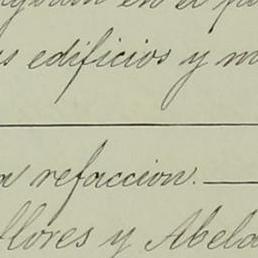 en el
edificios y
refaccion.—
Flores y Abela